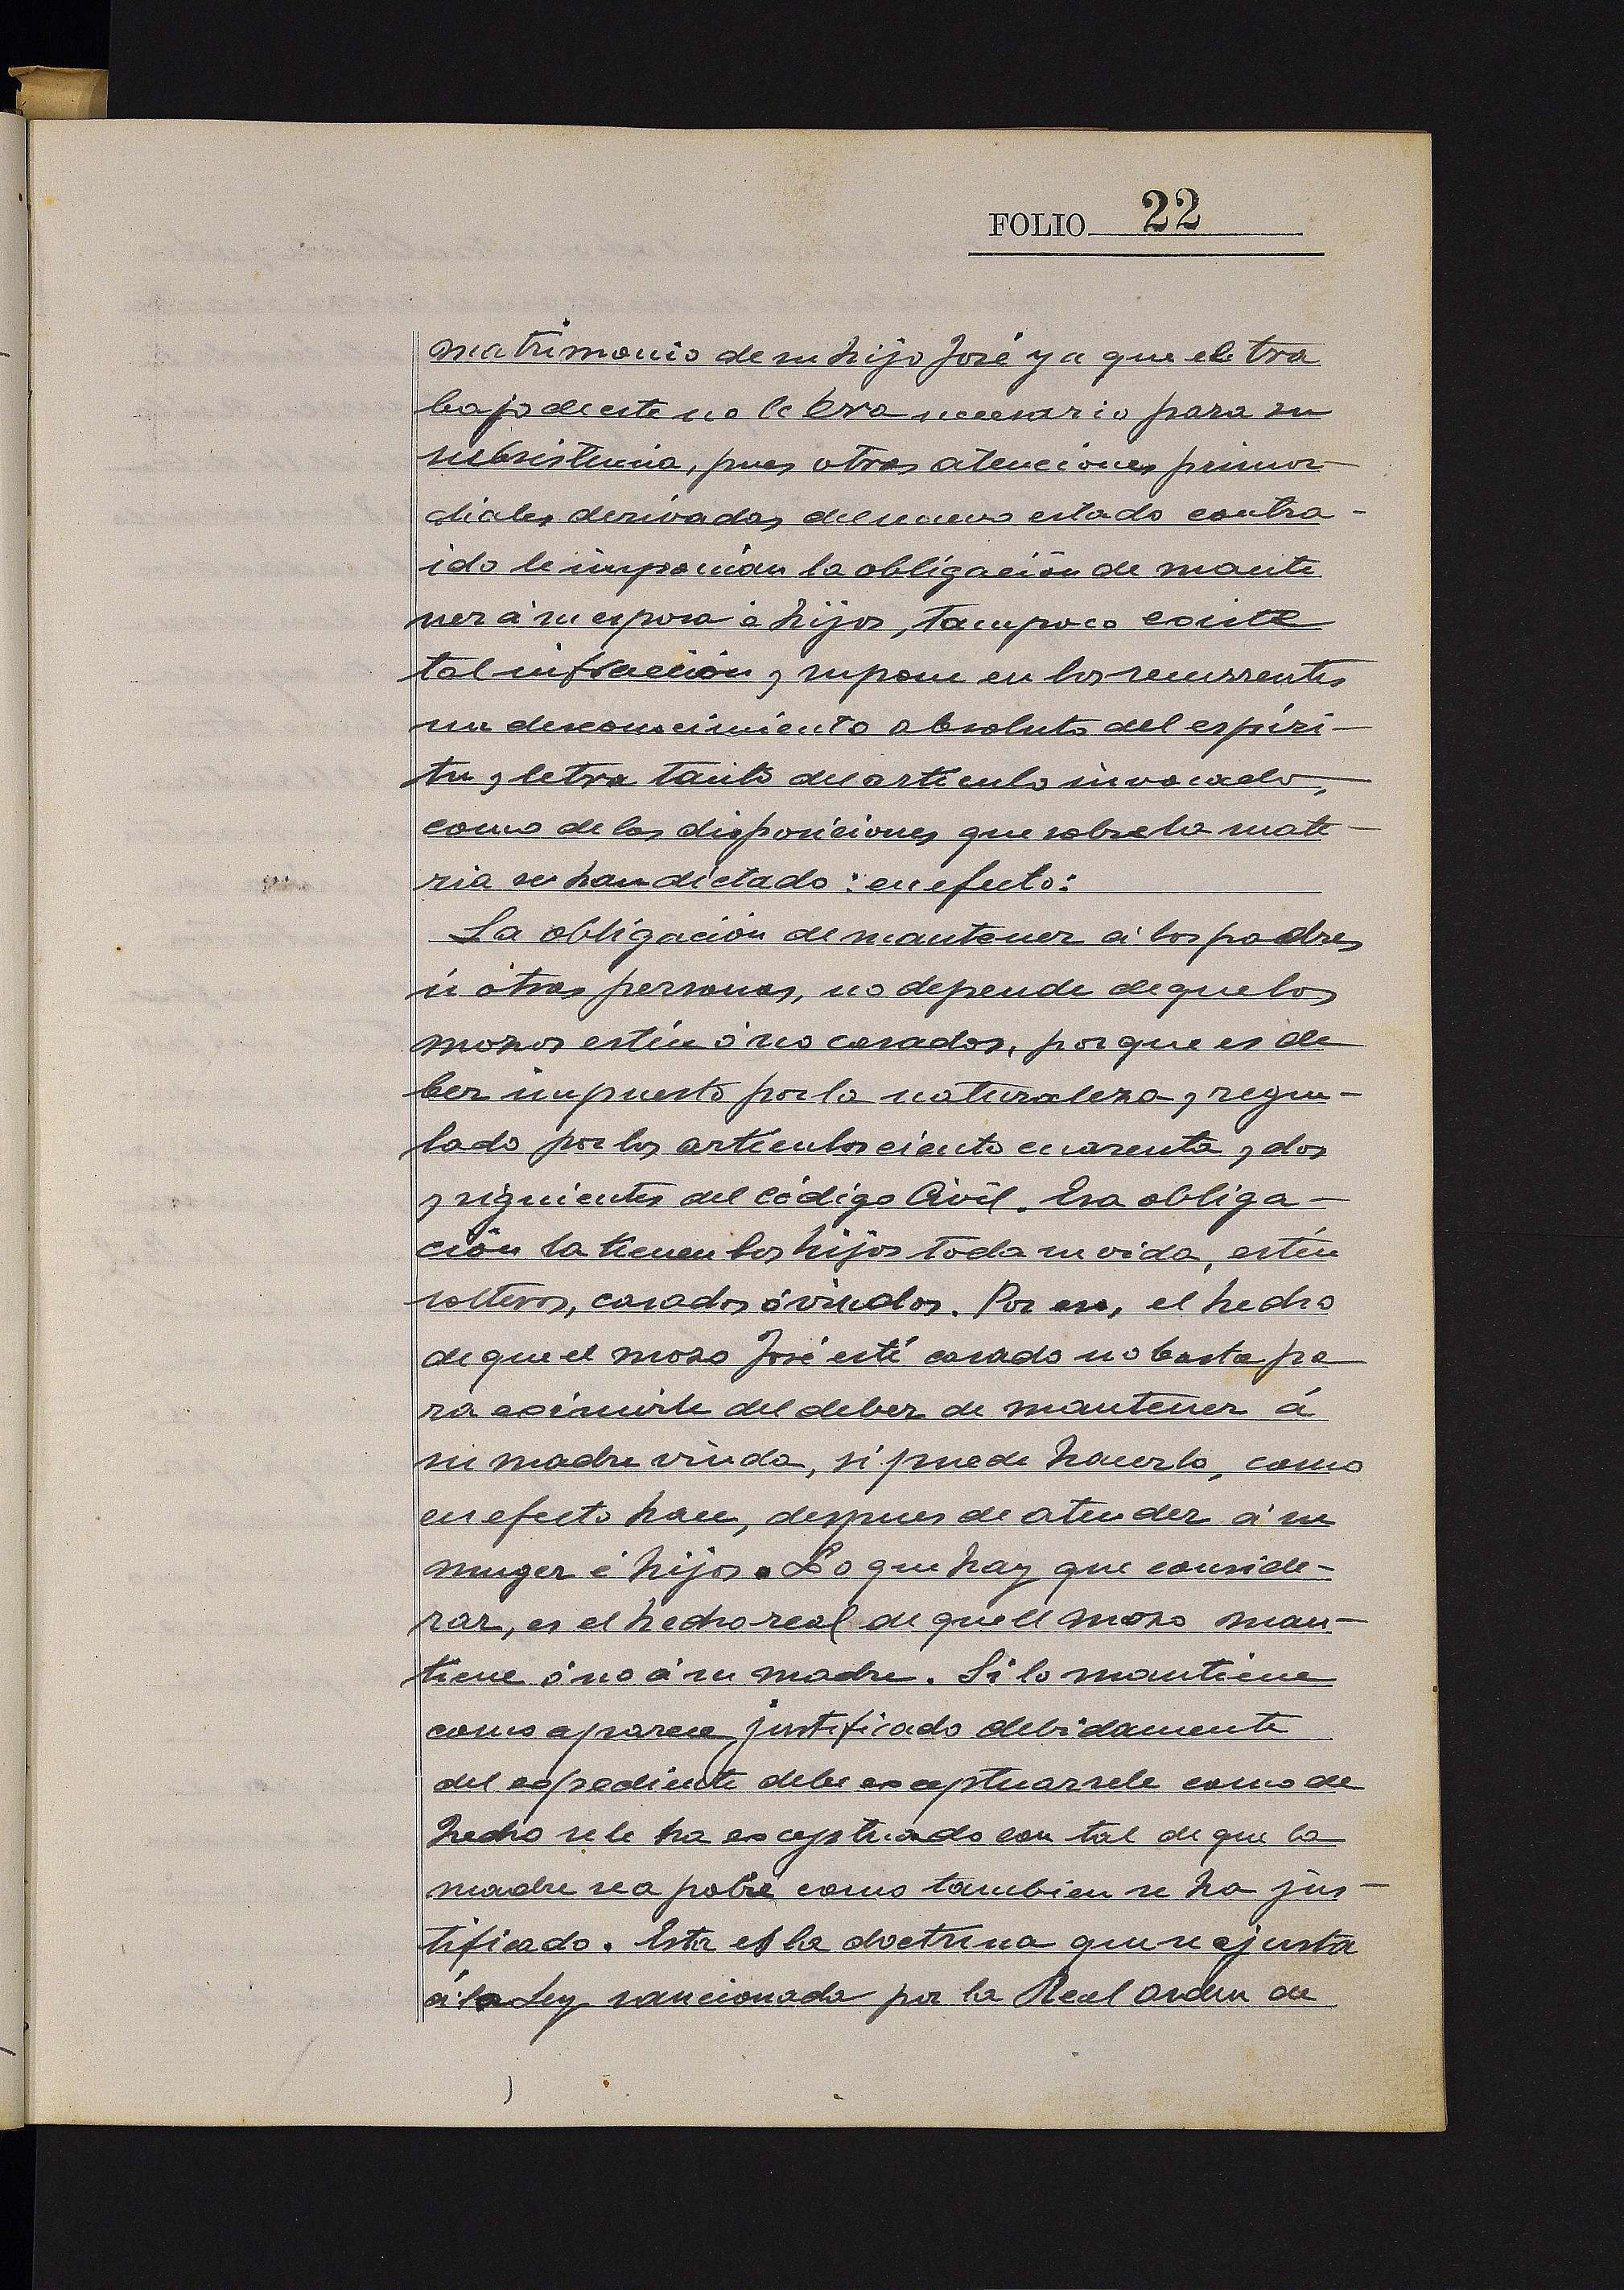 FOLIO 22
matrimonio de su hijo José ya que el tra
bajo de este no le era necesario para su
subsistencia, pues otras atenciones primor-
diales derivadas del nuevo estado contra-
ido le imponian la obligación de mante
ner á su esposa é hijos, tampoco existe
tal infracción y supone en los recurrentes
un desconocimiento absoluto del espíri-
tu y letra tanto del artículo invocado,
como de las disposiciones que sobre la mate-
ria se han dictado: en efecto:
La obligación de mantener á los padres
ú otras personas, no depende de que los
mozos estén ó no casados, porque es de
ber impuesto por la naturaleza y regu-
lado por los artículos ciento cuarenta y dos
y siguientes del Código Civil. Esa obliga-
ción la tienen los hijos toda su vida, estén
solteros, casados ó viudos. Por eso, el hecho
de que el mozo José esté casado no basta pa
ra eximirle del deber de mantener á
su madre viuda, si puede hacerlo, como
en efecto hace, despues de atender á su
muger é hijos. Lo que hay que conside-
rar, es el hecho real de que el mozo man-
tiene ó no á su madre. Si lo mantiene
como aparece justificado debidamente
del expediente debe exceptuarsele como de
hecho se le ha exceptuado con tal de que la
madre sea pobre como tambien se ha jus-
tificado. Esta es la doctrina que se ajusta
á la Ley sancionada por la Real orden de